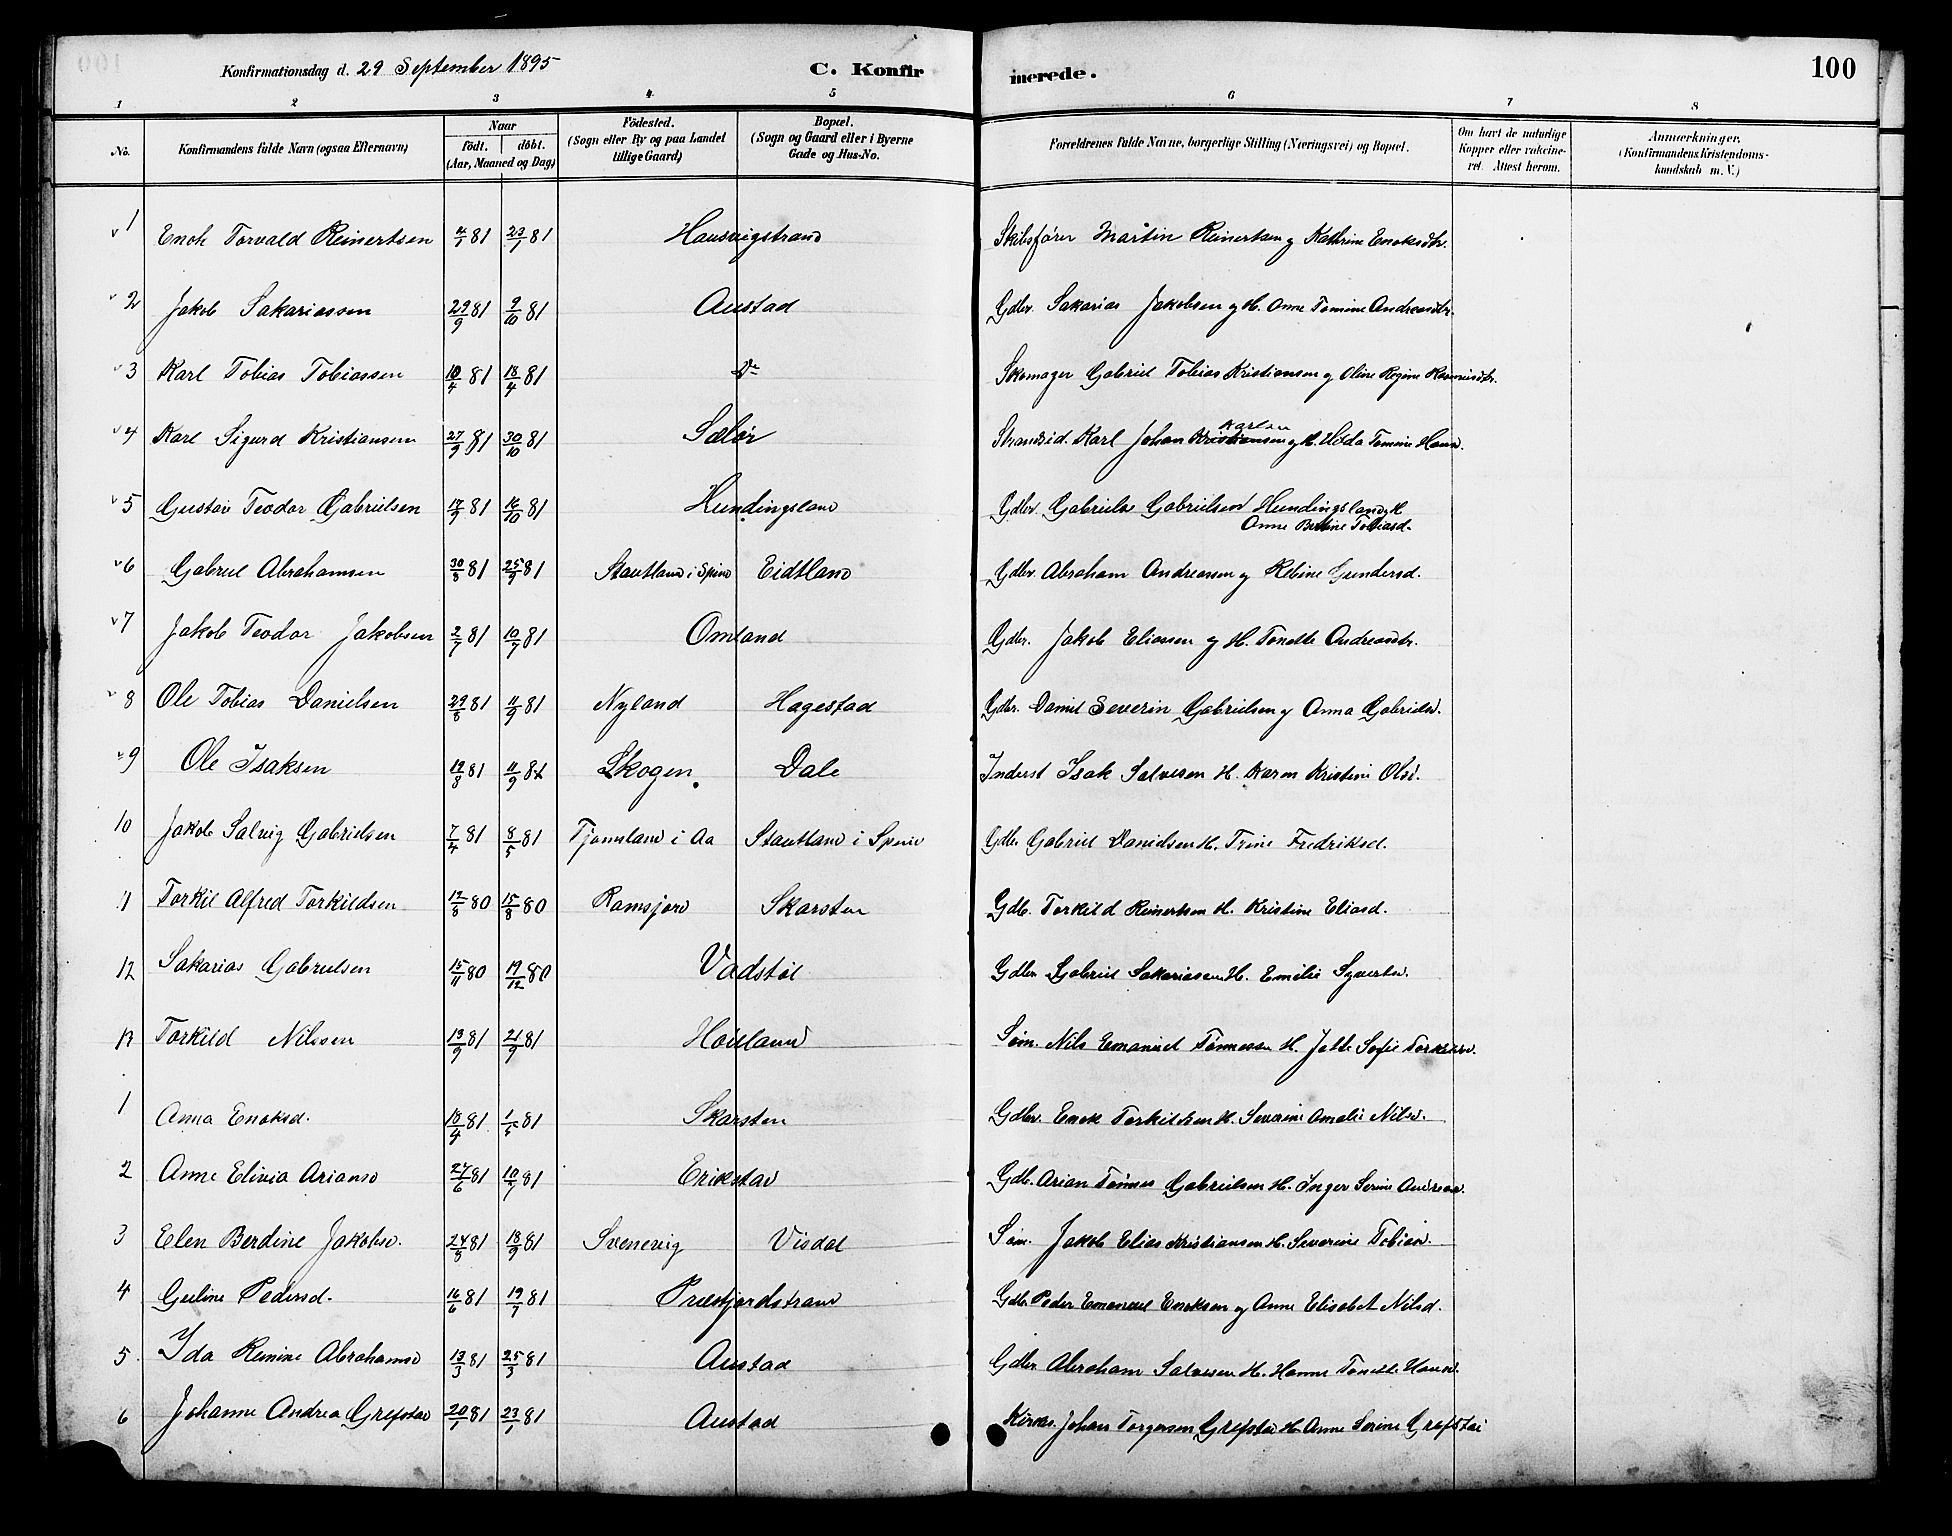 Konfirmationsdag d. 29 September 1895 C. Konfir merede. 100
1 2 3 4 5 6 7 8
No. Konfirmandens fulde Navn (ogsaa Efternavn) Naar født. døbt. (Aar, Maaned og Dag) Fødested. (Sogn eller By og paa Landet tillige Gaard) Bopæl. (Sogn og Gaard eller i Byerne Gade og Hus-No. Forældrenes fulde Navne, borgerlige Stilling (Næringsvei) og Bopæl. Om havt de naturlige Kopper eller vakcineret. Attest herom. Anmærkninger. (Konfirmandens Kristendomskundskab m. V.)
1 Enok Torvald Reinertsen 4/1 81 23/1 81 Hausvigstrand Skibsfører Martin Reinertsen og Kathrine Enoksdtr.
2 Jakob Sakariassen 29/9 81 9/10 81 Austad Gdbr. Sakarias Jakobsen og H. Anne Tomine Andreasdtr.
3 Karl Tobias Tobiassen 10/4 81 18/4 81 Do Skomager Gabriel Tobias Kristiansen og Oline Regine Rasmusdtr.
4 Karl Sigurd Kristiansen 27/9 81 30/10 81 Sælør Strandsid. Karl Johan Kristiansen Karlsen og H. Helda Tomine Hansd.
5 Gustav Teodor Gabrielsen 17/9 81 16/10 81 Hundingsland Gdbr. Gabriel Gabrielsen Hundingsland H. Anne Bertine Tobiasd.
6 Gabriel Abrahamsen 30/8 81 25/9 81 Stautland i Spind Eidtland Gdbr. Abraham Andreassen og Rebine Gundersd.
7 Jakob Teodor Jakobsen 2/7 81 10/7 81 Omland Gdbr. Jakob Eliassen og H. Tonette Andreasdtr.
8 Ole Tobias Danielsen 29/8 81 11/9 81 Nyland Hagestad Gdbr. Daniel Severin Gabrielsen og Anna Gabrielsd.
9 Ole Isaksen 19/8 81 11/9 81 Skogen. Dale Inderst Isak Salvesen H. Karen Kristine Olsd.
10 Jakob Salvig Gabrielsen 7/4 81 8/5 81 Tjomsland i Aa Stautland i Spind Gdb. Gabriel Danielsen H. Trine Fredriksd.
11 Torkil Alfred Torkildsen 12/8 80 15/8 80 Ramsjord Skarsten Gdb. Torkild Reinertsen H. Kristine Eliasd.
12 Sakarias Gabrielsen 15/11 80 19/12 80 Vadstøl Gdbr Gabriel Sakariassen H. Emilie Syvertsd.
13 Torkild Nilssen 13/9 81 21/9 81 Høiland Søm. Nils Emanuel Tønnessen H. Jette Sofie Torkildsd.
1 Anna Enoksd. 18/4 81 1/5 81 Skarsten Gdbr. Enok Torkildsen H. Severine Amalie Nilsd.
2 Anne Elivia Ariansd 27/6 81 10/7 81 Erikstad Gdb. Arian Tønnes Gabrielsen H. Inger Serine Andreasd.
3 Elen Berdine Jakobsd. 24/8 81 18/9 81 Svenevig Visdal Søm. Jakob Elias Kristiansen H. Severine Tobiasd.
4 Guline Pedersd. 16/6 81 19/7 81 Præstfjordstrand Gdb. Peder Emanuel Enoksen og Anne Elisabet Nilsd.
5. Ida Remine Abrahamsd 13/3 81 25/3 81 Austad Gdbr Abraham Salvesen H. Hanne Tonette Hansd.
6 Johanne Andrea Grefstad 20/1 81 23/1 81 Austad Kirkes. Johan Torgersen Grefstad H. Anne Serine Grefstad